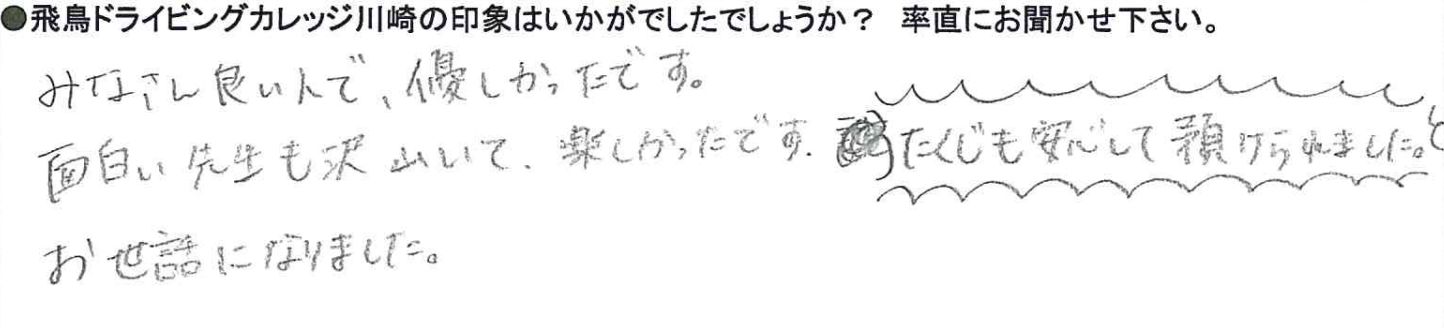 ●飛鳥ドライビングカレッジ川崎の印象はいかがでしたでしょうか？　率直にお聞かせ下さい。
みなさん良い人で、優しかったです。
面白い先生も沢山いて、楽しかったです。たくじも安心して預けられました。
お世話になりました。